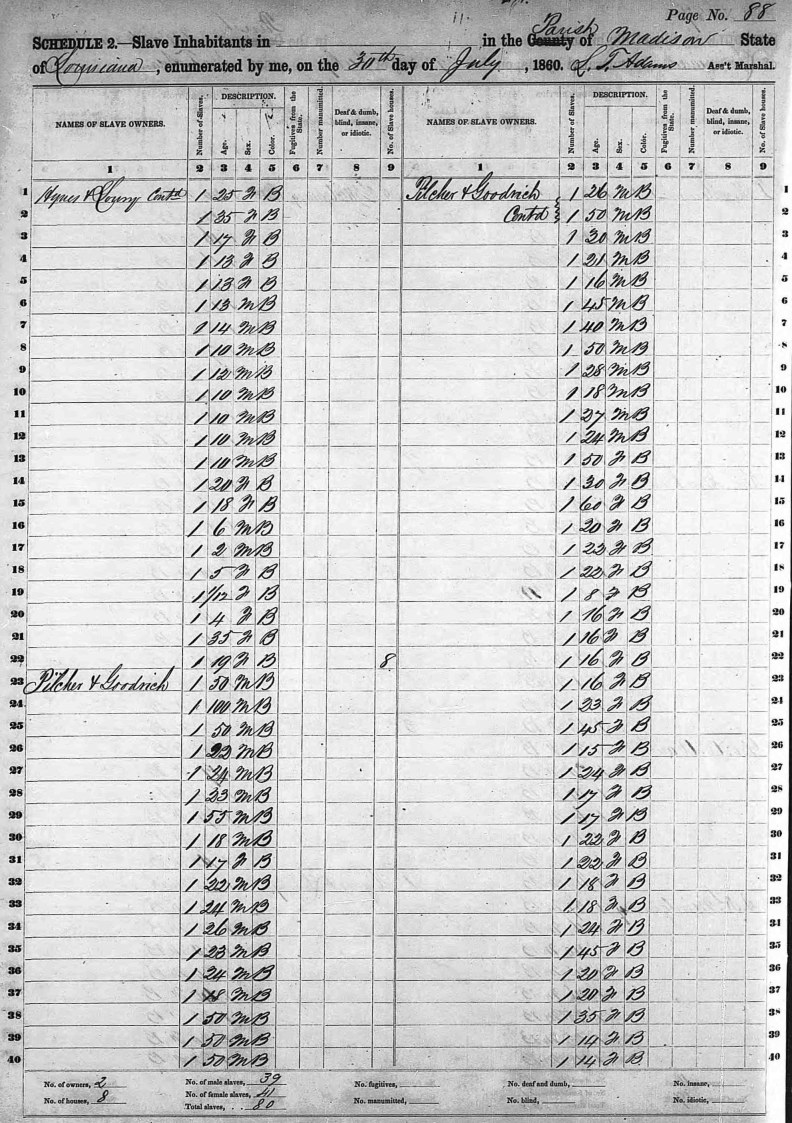 Page No. 88
SCHEDULE 2.—Slave Inhabitants in in the County Parish of Madison State
of Louisiana, enumerated by me, on the 30th day of July, 1860. L. T. Adams Ass't Marshal.
NAMES OF SLAVE OWNERS. Number of Slaves. DESCRIPTION. Age. Sex. Color. Fugitives from the State. Number manumitted. Deaf & dumb, blind, insane, or idiotic. No. of Slave houses. NAMES OF SLAVE OWNERS. Number of Slaves. DESCRIPTION. Age. Sex. Color. Fugitives from the State. Number manumitted. Deaf & dumb, blind, insane, or idiotic. No. of Slave houses.
1 2 3 4 5 6 7 8 9 1 2 3 4 5 6 7 8 9
1 Hynes & Contd 1 25 F B Pilcher & Goodrich 1 26 M B 1
2 1 35 F B Contd 1 50 M B 2
3 1 17 F B 1 30 M B 3
4 1 13 F B 1 21 M B 4
5 1 13 F B 1 16 M B 5
6 1 13 M B 1 45 M B 6
7 1 14 M B 1 40 M B 7
8 1 10 M B 1 50 M B 8
9 1 12 M B 1 28 M B 9
10 1 10 M B 1 18 M B 10
11 1 10 M B 1 27 M B 11
12 1 10 M B 1 24 M B 12
13 1 10 M B 1 50 F B 13
14 1 20 F B 1 30 F B 14
15 1 18 F B 1 60 F B 15
16 1 6 M B 1 20 F B 16
17 1 2 M B 1 22 F B 17
18 1 5 F B 1 22 F B 18
19 1 1/12 F B 1 8 F B 19
20 1 4 F B 1 16 F B 20
21 1 35 F B 1 16 F B 21
22 1 19 F B 8 1 16 F B 22
23 Pilcher & Goodrich 1 50 M B 1 16 F B 23
24 1 100 M B 1 23 F B 24
25 1 50 M B 1 45 F B 25
26 1 22 M B 1 15 F B 26
27 1 24 M B 1 24 F B 27
28 1 23 M B 1 17 F B 28
29 1 55 M B 1 17 F B 29
30 1 18 M B 1 22 F B 30
31 1 17 F B 1 22 F B 31
32 1 22 M B 1 18 F B 32
33 1 24 M B 1 18 F B 33
34 1 26 M B 1 24 F B 34
35 1 23 M B 1 45 F B 35
36 1 24 M B 1 20 F B 36
37 1 18 M B 1 20 F B 37
38 1 50 M B 1 35 F B 38
39 1 50 M B 1 14 F B 39
40 1 50 M B 1 14 F B 40
No. of owners, 2 No. of male slaves, 39 No. fugitives, No. deaf and dumb, No. insane,
No. of houses, 8 No. of female slaves, 41 No. manumitted, No. blind, No. idiotic,
Total slaves, 80